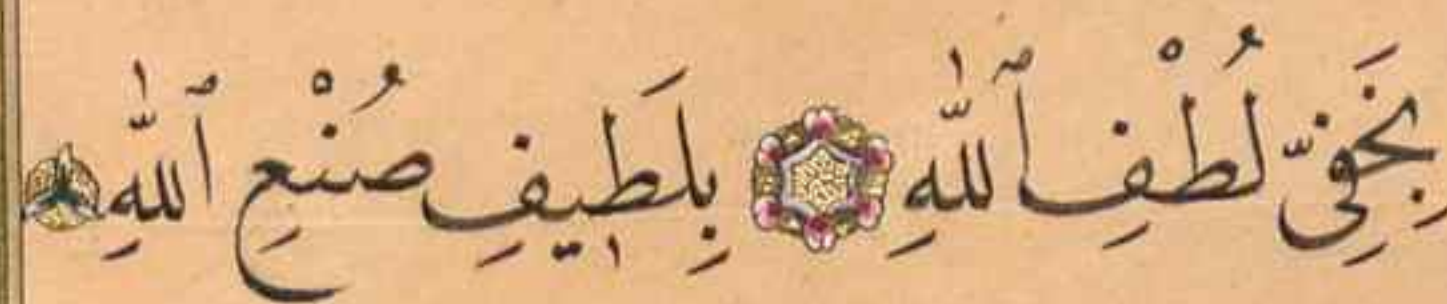 بِخَفِيِّ لُطْفِ ٱللّٰهِ بِلَطِيفِ صُنْعِ ٱللّٰهِ